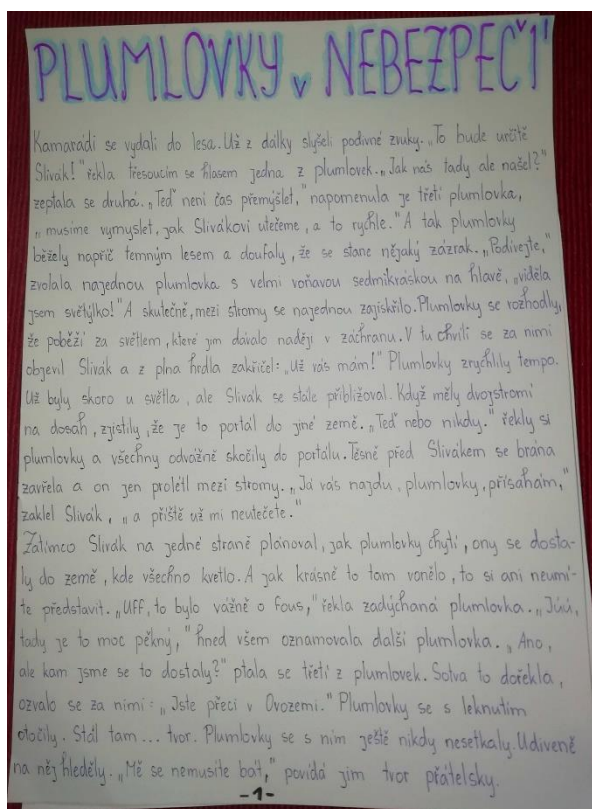 PLUMLOVKY v NEBEZPEČÍ
Kamarádi se vydali do lesa. Už z dálky slyšeli podivné zvuky. „To bude určitě
Slivák!" řekla třesoucím se hlasem jedna z plumlovek. „Jak nás tady ale našel?"
zeptala se druhá. „Teď není čas přemýšlet," napomenula je třetí plumlovka,
„musíme vymyslet, jak Slivákovi utečeme, a to rychle." A tak plumlovky
běžely napříč temným lesem a doufaly, že se stane nějaký zázrak. „Podívejte,"
zvolala najednou plumlovka s velmi voňavou sedmikráskou na hlavě, „viděla
jsem světýlko!" A skutečně, mezi stromy se najednou zajiskřilo. Plumlovky se rozhodly,
že poběží za světlem, které jim dávalo naději v záchranu. V tu chvíli se za nimi
objevil Slivák a z plna hrdla zakřičel: „Už vás mám!" Plumlovky zrychlily tempo.
Už byly skoro u světla, ale Slivák se stále přibližoval. Když měly dvojstromí
na dosah, zjistily, že je to portál do jiné země. „Teď nebo nikdy." řekly si
plumlovky a všechny odvážně skočily do portálu. Těsně před Slivákem se brána
zavřela a on jen prolétl mezi stromy. „Já vás najdu, plumlovky, přísahám,"
zaklel Slivák, „a příště už mi neutečete."
Zatímco Slivák na jedné straně plánoval, jak plumlovky chytí, ony se dosta-
ly do země, kde všechno kvetlo. A jak krásně to tam vonělo, to si ani neumí-
te představit. „Uff, to bylo vážně o fous," řekla zadýchaná plumlovka. „Júú,
tady je to moc pěkný," hned všem oznamovala další plumlovka. „Ano,
ale kam jsme se to dostaly?" ptala se třetí z plumlovek. Sotva to dořekla,
ozvalo se za nimi: „Jste přeci v Ovozemi." Plumlovky se s leknutím
otočily. Stál tam... tvor. Plumlovky se s ním ještě nikdy nesetkaly. Udiveně
na něj hleděly. „Mě se nemusíte bát," povídá jim tvor přátelsky.
-1-